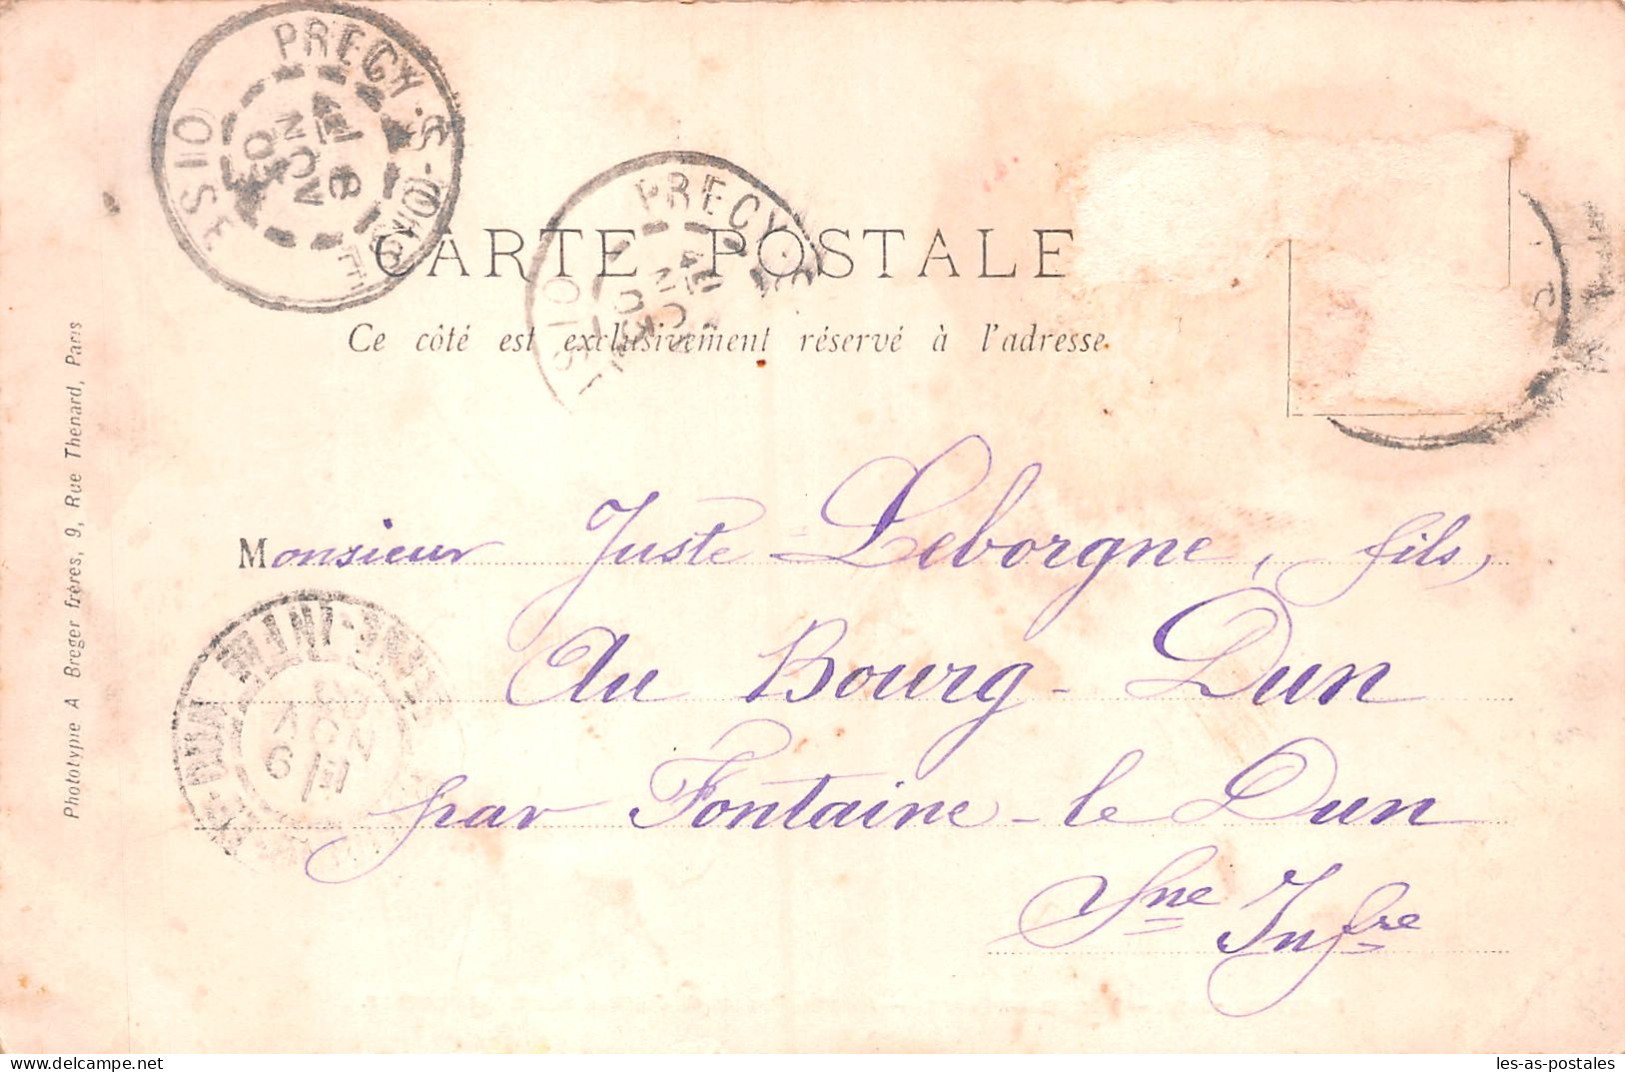 PRECY-S-
OISE
NOV
03
PRECY
OISE
CARTE POSTALE
Ce côté est exclusivement réservé à l'adresse
Monsieur Juste Leborgne, fils,
Au Bourg-Dun
par Fontaine-le Dun
Sne Infre
Phototypie A Breger frères, 9, Rue Thenard, Paris
les-as-postales